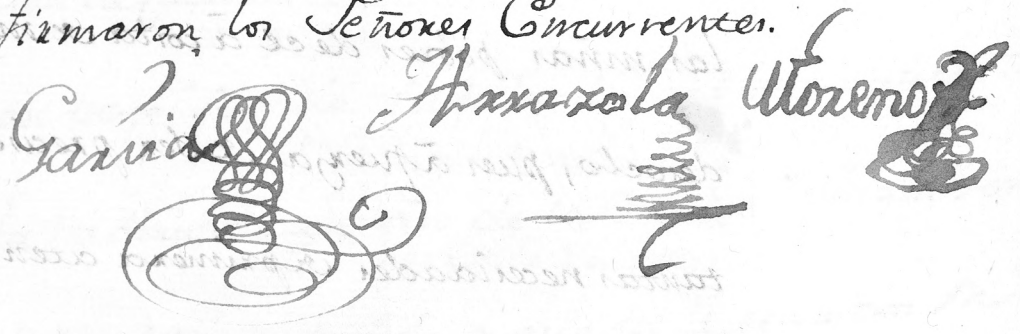 firmaron los Señores Concurrentes.
Garcia Arrazola Moreno